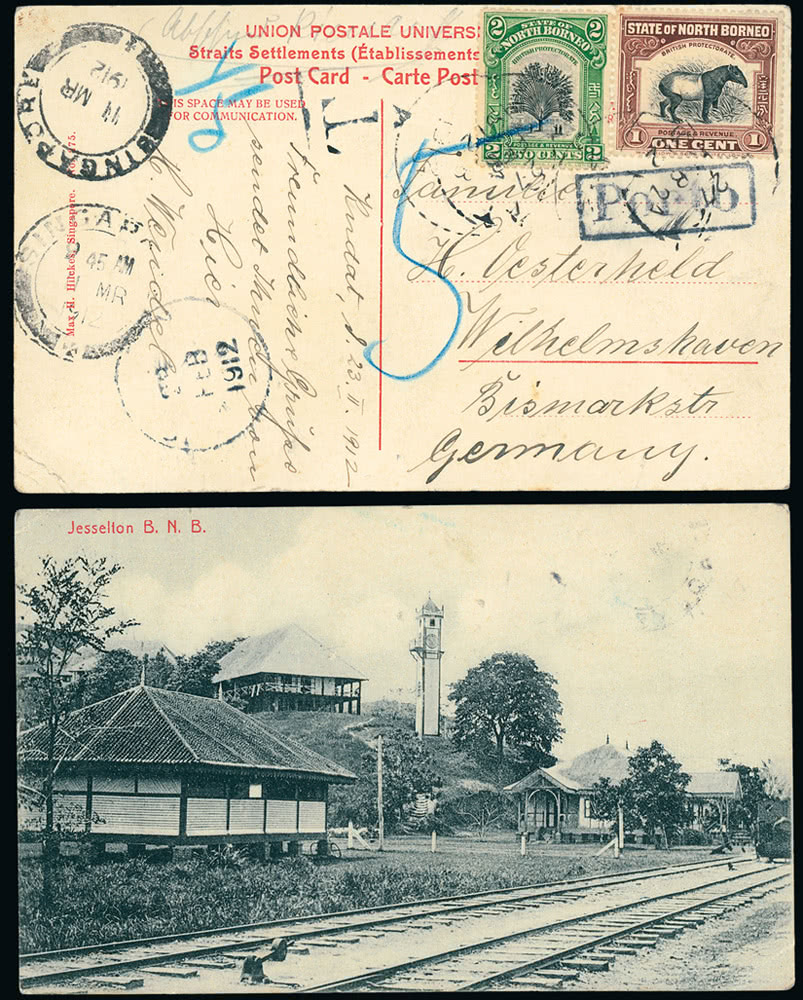 UNION POSTALE UNIVERS
Straits Settlements (Établissements
Post Card - Carte Post
THIS SPACE MAY BE USED
FOR COMMUNICATION.
Max H. Hilckes, Singapore. 75.
2 STATE OF 2
NORTH BORNEO
BRITISH PROTECTORATE
POSTAGE & REVENUE
2 TWO CENTS 2
STATE OF NORTH BORNEO
BRITISH PROTECTORATE
POSTAGE & REVENUE
1 ONE CENT 1
SINGAPORE
11 MR
1912
SINGAP
45 AM
MR
12
1912
FEB
T
5
Porto
Kudat, d. 23. II. 1912
Freundliche Grüße
sendet Ihnen von
Hier
Familie
H. Vesterheld
Wilhelmshaven
Bismarkstr
Germany.
Jesselton B. N. B.